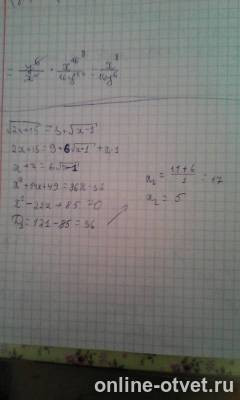 √2x+15 = 3+√x-1
2x+15 = 9+6√x-1 + x-1
x+7 = 6√x-1
x²+14x+49 = 36x-36
x²-22x+85=0
D₁=121-85=36
x₁ = (11+6)/1 = 17
x₂ = 5
online-otvet.ru